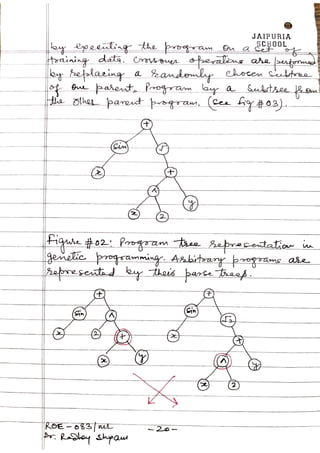 JAIPURIA
SCHOOL
by executing the program on a set of
training data. Crossover operations are performed
by replacing a randomly chosen subtree
of one parent program by a subtree from
the other parent program. (See fig #03).
+
sin √
x +
^ y
x 2
Figure #02: Program tree representation in
genetic programming. Arbitrary programs are
represented by their parse trees.
+ +
sin ^ sin √
x 2 + x +
x y ^ y
x 2
ROE-083/ML -20-
Dr. Radhey Shyam